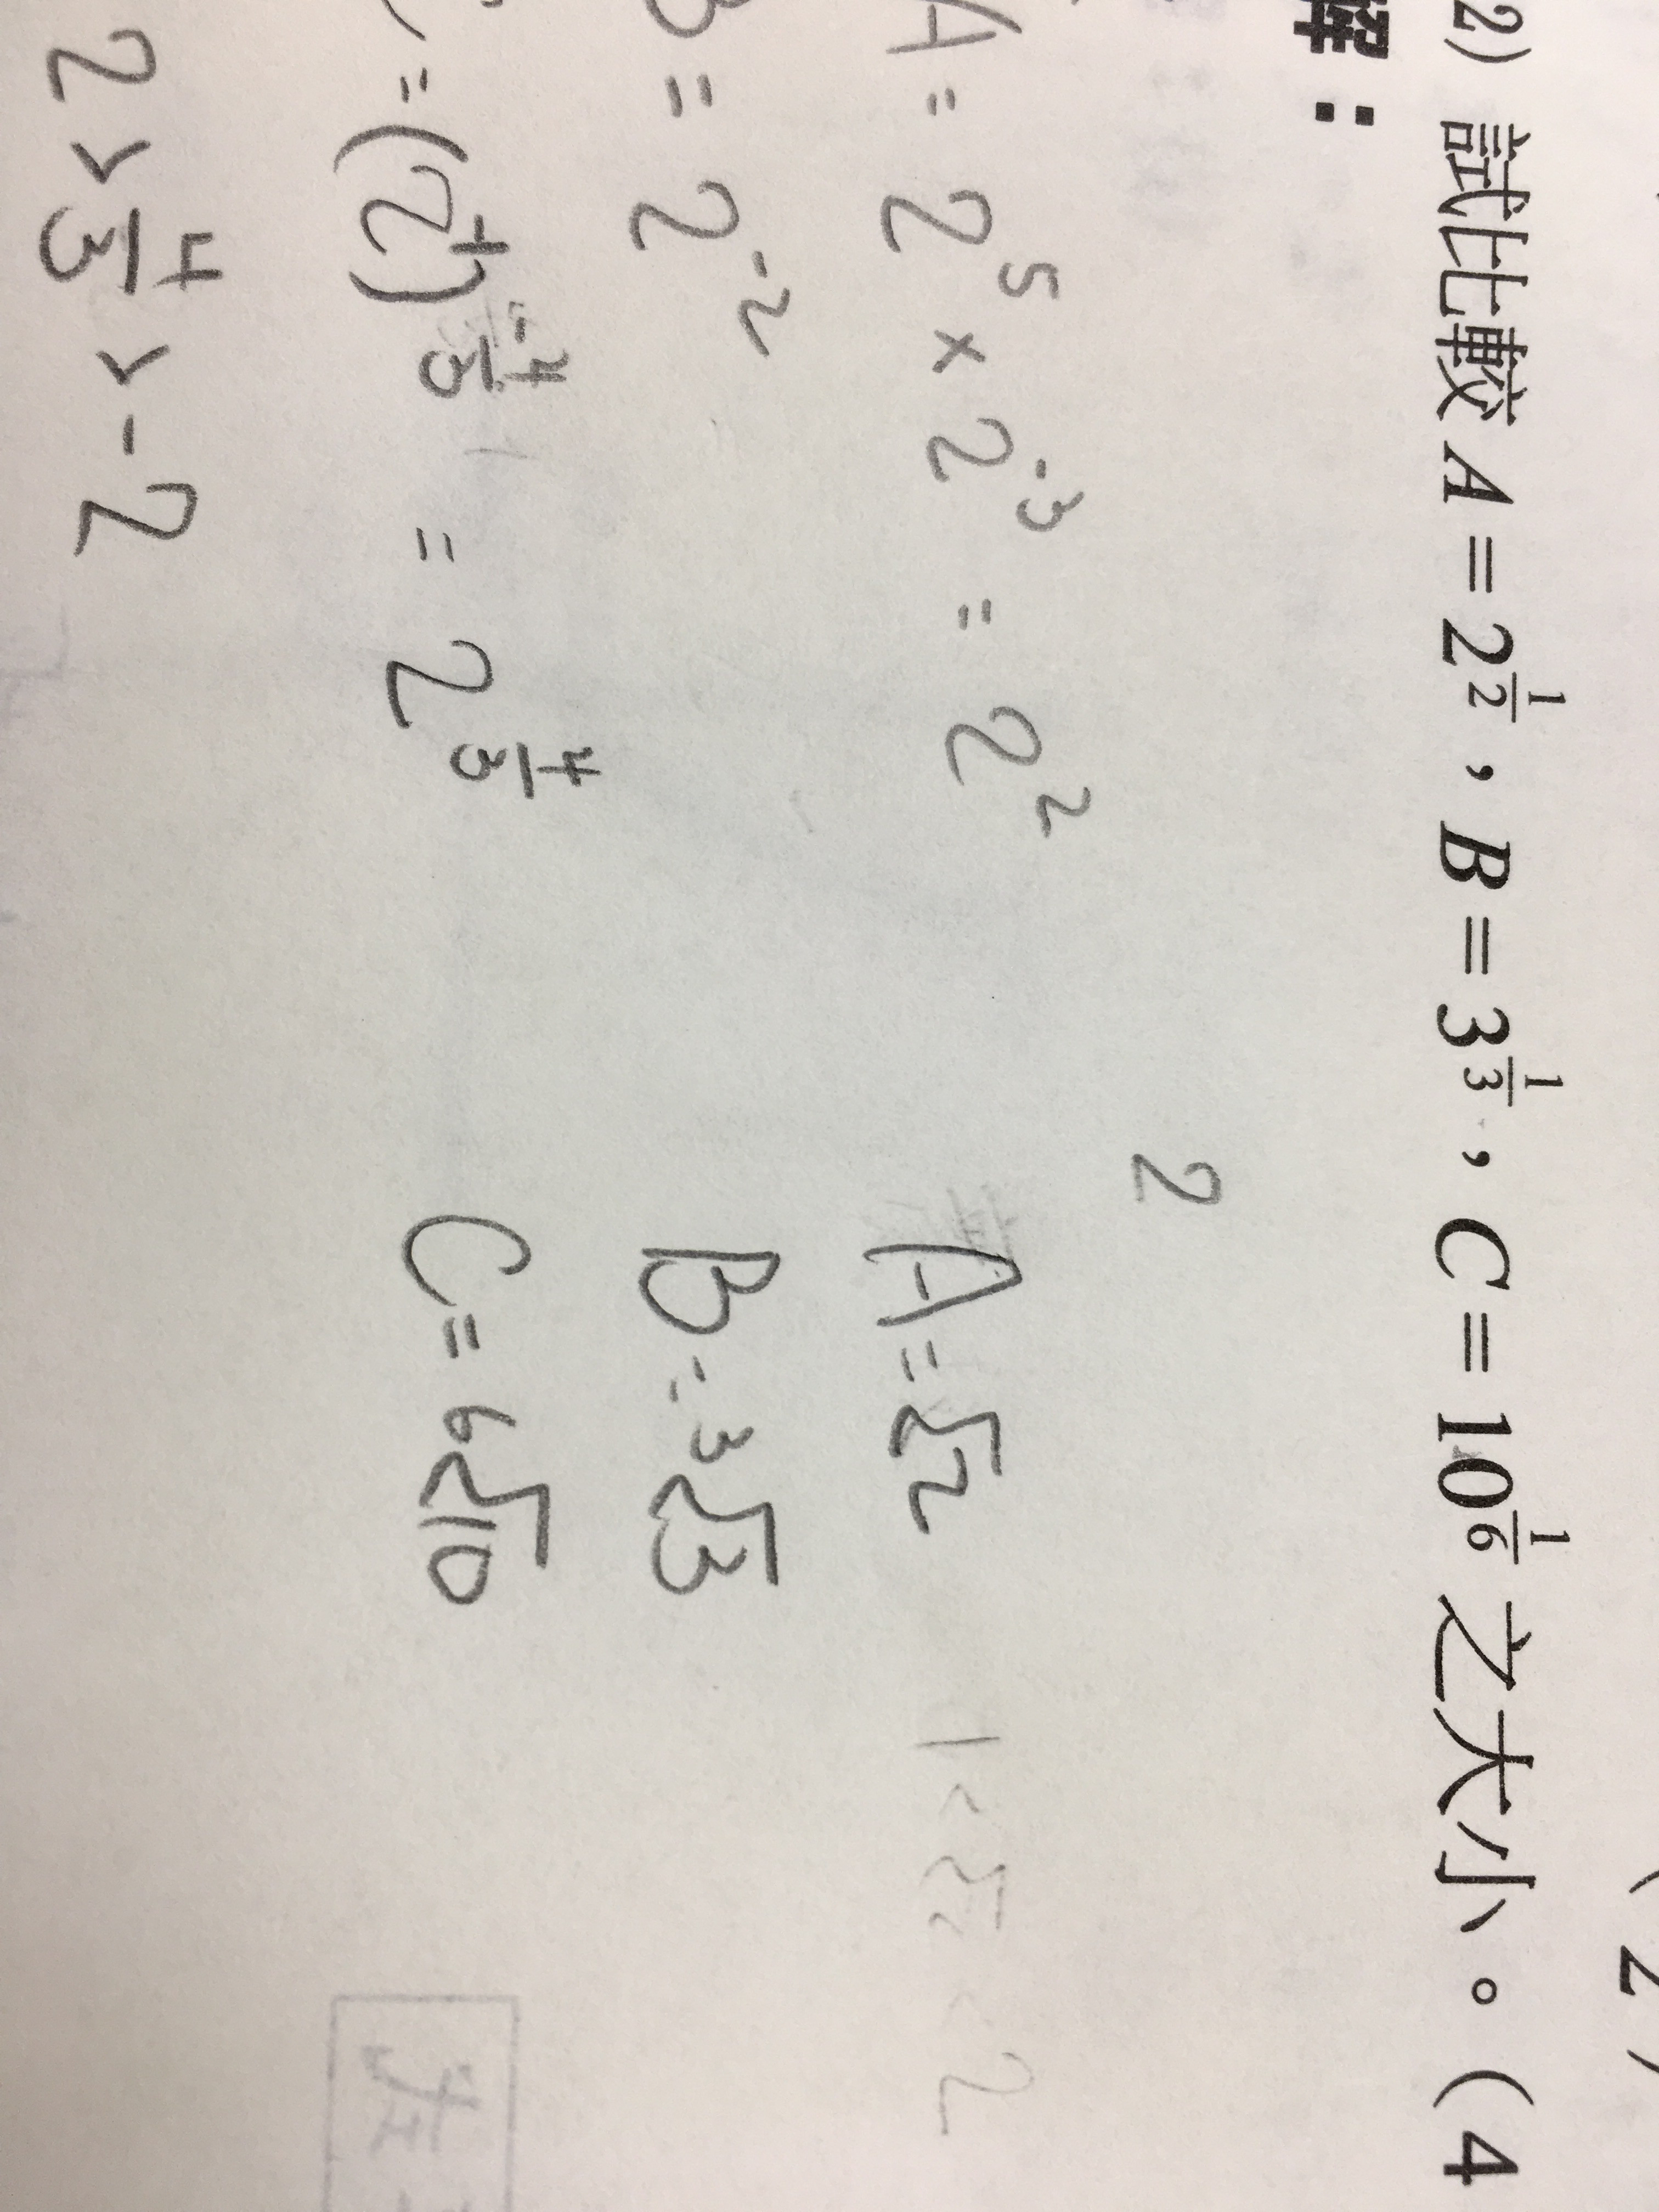 2) 試比較 A = 2^{\frac{1}{2}}，B = 3^{\frac{1}{3}}，C = 10^{\frac{1}{6}} 之大小。(4
解：
2
A = 2^5 × 2^{-3} = 2^2
B = 2^{-2}
= (2^{-1})^{-\frac{4}{3}} = 2^{\frac{4}{3}}
2 > \frac{4}{3} > -2
A = √2 1 < √2 < 2
B = ³√3
C = ⁶√10